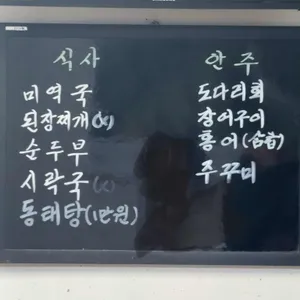 식사
미역국
된장찌개(x)
순두부
시락국(x)
동태탕(1만원)
안주
도다리회
장어구이
홍어(삼합)
주꾸미